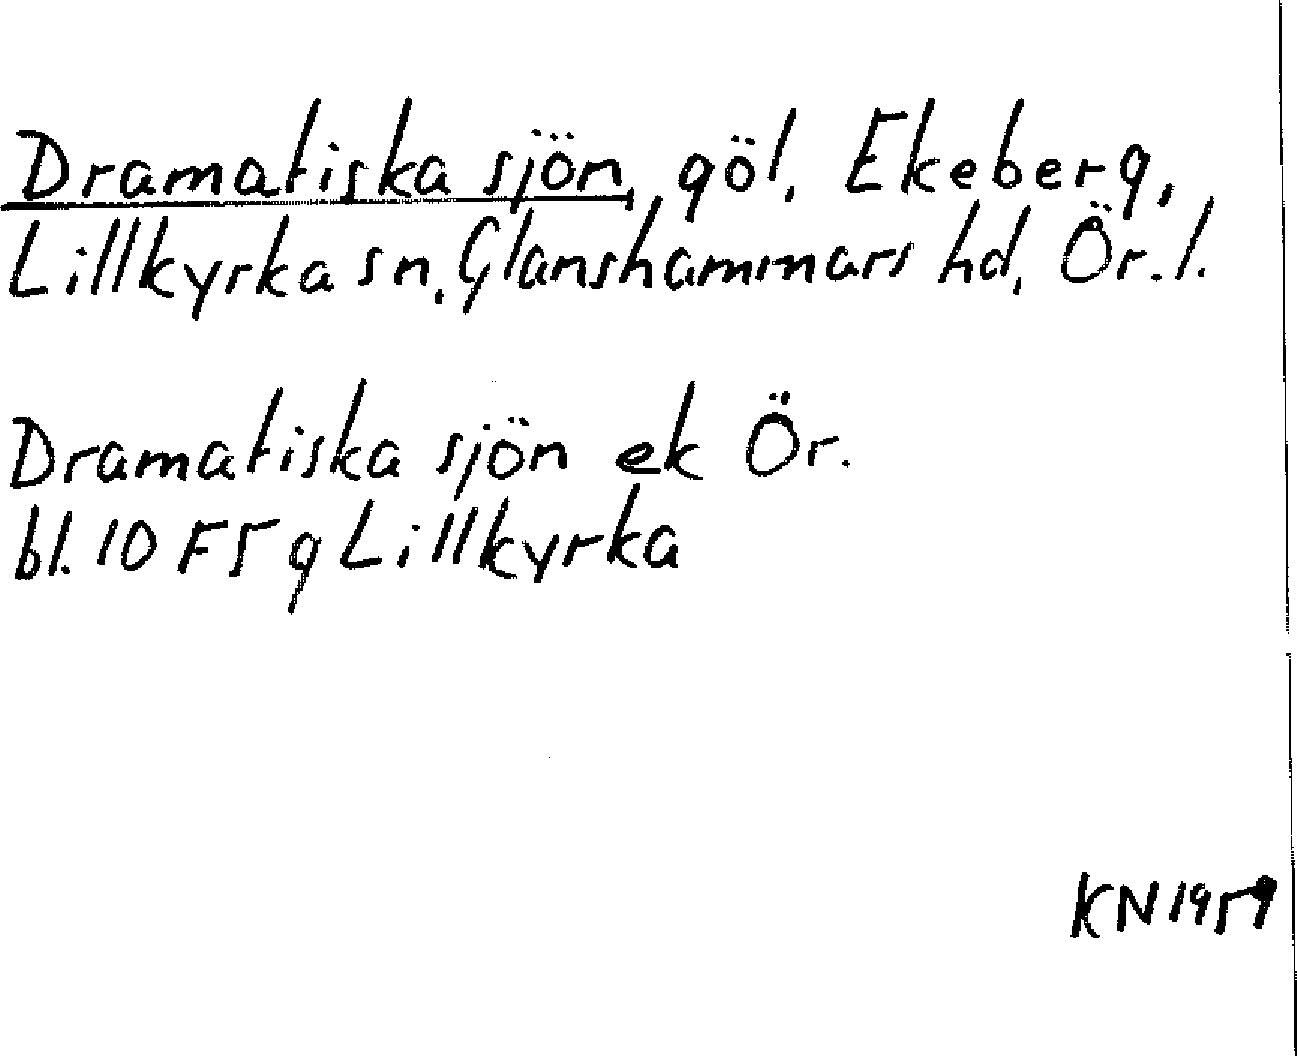 Dramatiska sjön, göl, Ekeberg,
Lillkyrka sn, Glanshammars hd, Ör. l.
Dramatiska sjön ek Ör.
bl. 10 F5 g Lillkyrka
KN 1959